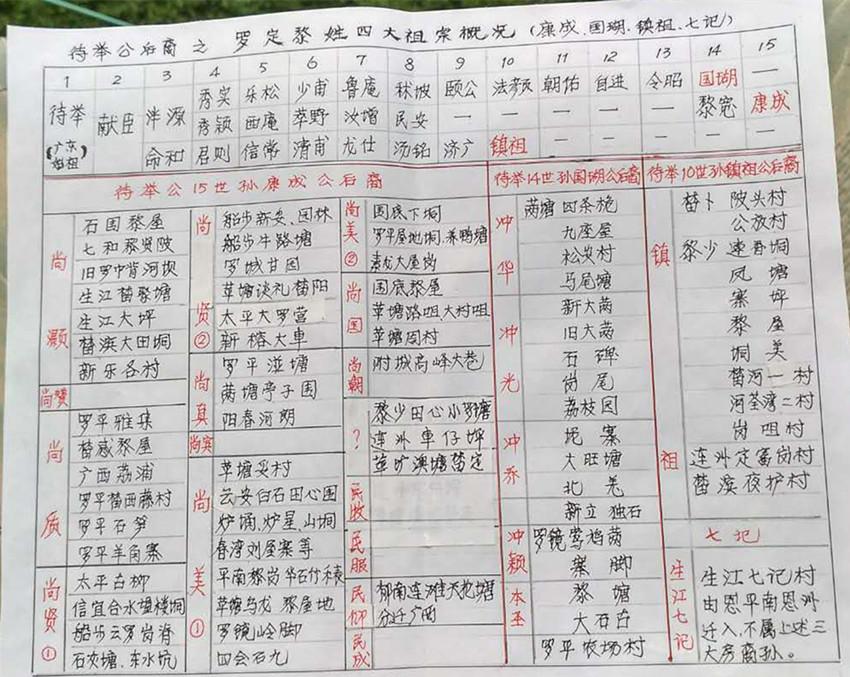 待举公后裔之 罗定黎姓四大祖宗概况(康成、国瑚、镇祖、七记)
1 2 3 4 5 6 7 8 9 10 11 12 13 14 15
待举 (广东始祖) 献臣
泮源 秀实 乐松 少甫 鲁庵 秫坡 颐公 法豸 朝佑 自进 令昭 国瑚 —
秀颖 西庵 萃野 汝增 民安 — — — — — 黎宽 康成
命和 君则 信常 清甫 龙仕 汤铭 济广 镇祖 — — — — —
待举公15世孙康成公后裔
尚灏
石围黎屋
七和黎贤陂
旧罗中背河坝
生江替黎塘
生江大坪
替滨大田垌
新乐各村
尚赞
尚质
罗平雅琪
替感黎屋
广西荔浦
罗平替西藤村
罗平石笋
罗平羊角寨
尚贤①
太平古柳
信宜合水望楼垌
船步云罗岗脊
石夹塘、东水坑
尚贤②
船步新妥、园林
船步牛路塘
罗城甘园
苹塘谈礼替阳
太平大罗营
新榕大車
尚真
罗平湴塘
䓣塘亭子围
阳春河朗
尚宾
尚美①
苹塘妥村
云安白石田心围
炉垌、炉星、山垌
春湾刘屋寨等
平南黎岗华石竹
苹塘乌龙 黎屋地
罗镜岭脚
四会石九
尚美②
围底下垌
罗平屋地垌、养鸭塘
素龙大屋岗
尚国
围底黎屋
苹塘路咀大村咀
苹塘周村
尚朝
附城高峰大巷
?
黎少田心小罗塘
连州車仔坪
苹圹澳塘替定
民政
民服
民仰
郁南连滩天花塘
分迁广西
民成
待举14世孙国瑚公后裔
冲华
䓣塘四条桅
九座屋
松炭村
马尾塘
冲光
新大䓣
旧大䓣
石碑
岗尾
荔枝园
冲乔
坭寨
大旺塘
北羌
新立 独石
冲颖
罗镜莺鸪䓣
寨脚
本圣
黎塘
大石古
罗平农场村
待举10世孙镇祖公后裔
镇祖
替卜 陂头村
公放村
黎少 逹吾垌
凤塘
寨坪
黎屋
垌美
替河一村
河荃湾二村
岗咀村
连州定富岗村
替滨夜护村
七记
生江七记
生江七记村
由恩平南恩州
迁入,不属上述三
大房裔孙。